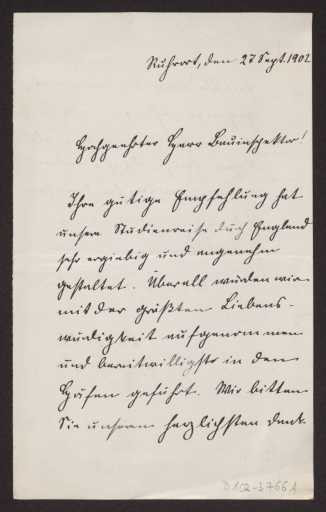 Ruhrort, den 27 Sept. 1902
Hochgeehrter Herr Bauinspektor!
Ihre gütige Empfehlung hat
unsere Studienreise durch England
sehr ergiebig und angenehm
gestaltet. Überall wurden wir
mit der größten Liebens-
würdigkeit aufgenommen
und bereitwilligst in den
Häfen geführt. Wir bitten
Sie unseren herzlichsten Dank